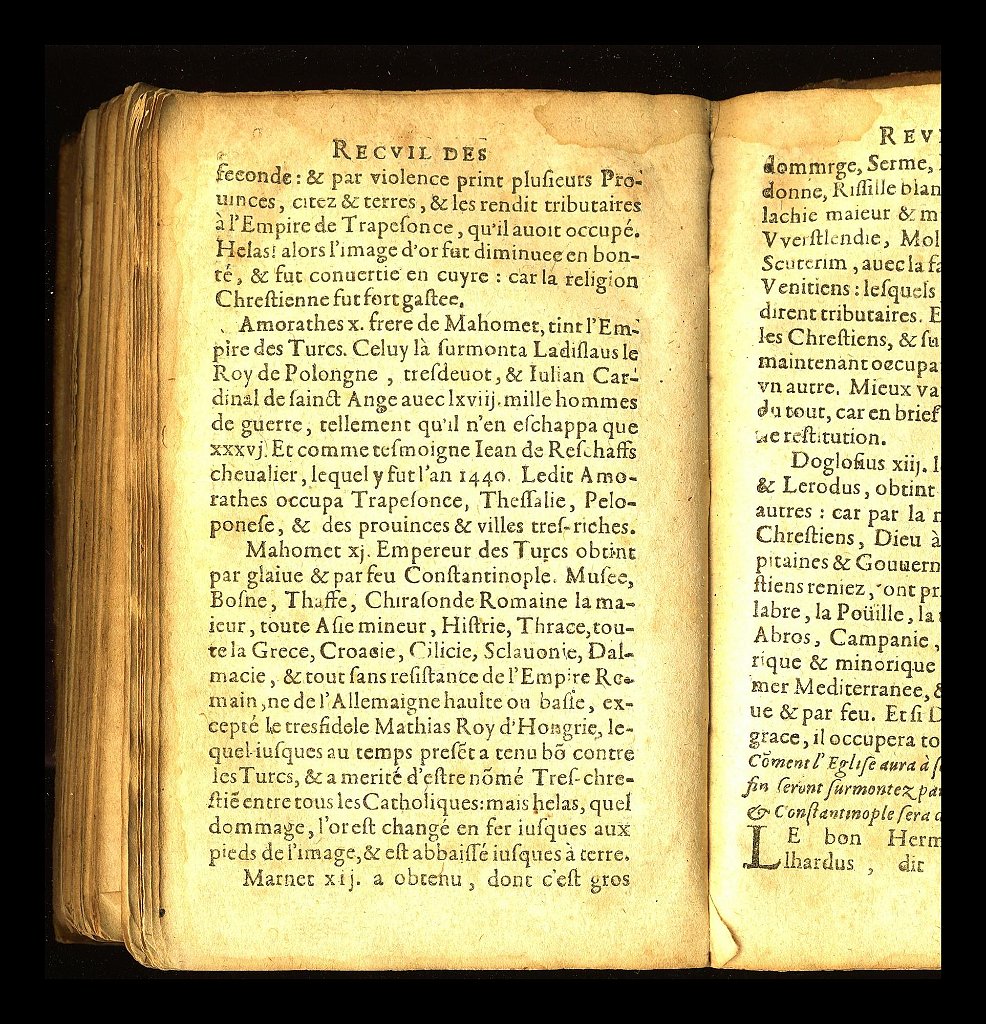 RECVIL DES
ſeconde: & par violence print pluſieurs Pro-
uinces, citez & terres, & les rendit tributaires
à l'Empire de Trapeſonce, qu'il auoit occupé.
Helas! alors l'image d'or fut diminuee en bon-
té, & fut conuertie en cuyre : car la religion
Chreſtienne fut fort gaſtee.
Amorathes x. frere de Mahomet, tint l'Em-
pire des Turcs. Celuy là ſurmonta Ladiſlaus le
Roy de Polongne , treſdeuot, & Iulian Car-
dinal de ſainct Ange auec lxviij. mille hommes
de guerre, tellement qu'il n'en eſchappa que
xxxvj. Et comme teſmoigne Iean de Reſchaffs
cheualier, lequel y fut l'an 1440. Ledit Amo-
rathes occupa Trapeſonce, Theſſalie, Pelo-
poneſe, & des prouinces & villes treſ-riches.
Mahomet xj. Empereur des Turcs obtint
par glaiue & par feu Conſtantinople. Muſee,
Boſne, Thaffe, Chiraſonde Romaine la ma-
ieur, toute Aſie mineur, Hiſtrie, Thrace, tou-
te la Grece, Croacie, Cilicie, Sclauonie, Dal-
macie, & tout ſans reſiſtance de l'Empire Ro-
main, ne de l'Allemaigne haulte ou baſſe, ex-
cepté le tresfidele Mathias Roy d'Hongrie, le-
quel iuſques au temps preſēt a tenu bō contre
les Turcs, & a merité d'eſtre nōmé Treſ-chre-
ſtiē entre tous les Catholiques: mais helas, quel
dommage, l'or eſt changé en fer iuſques aux
pieds de l'image, & eſt abbaiſſé iuſques à terre.
Marnet xij. a obtenu, dont c'eſt gros
REV
dommrge, Serme,
donne, Riſſille blan
lachie maieur & m
Vverſtlendie, Mol
Scuterim, auec la fa
Venitiens : leſquels
dirent tributaires. E
les Chreſtiens, & ſu
maintenant occupa
vn autre. Mieux va
du tout, car en brief
ue reſtitution.
Dogloſius xiij. l
& Lerodus, obtint
autres : car par la
Chreſtiens, Dieu à
pitaines & Gouuern
ſtiens reniez, ont pr
labre, la Poüille, la
Abros, Campanie,
rique & minorique
mer Mediterranee, &
ue & par feu. Et ſi D
grace, il occupera to
Cōment l'Egliſe aura à ſ
fin ſeront ſurmontez par
& Conſtantinople ſera
LE bon Herm
lhardus , dit